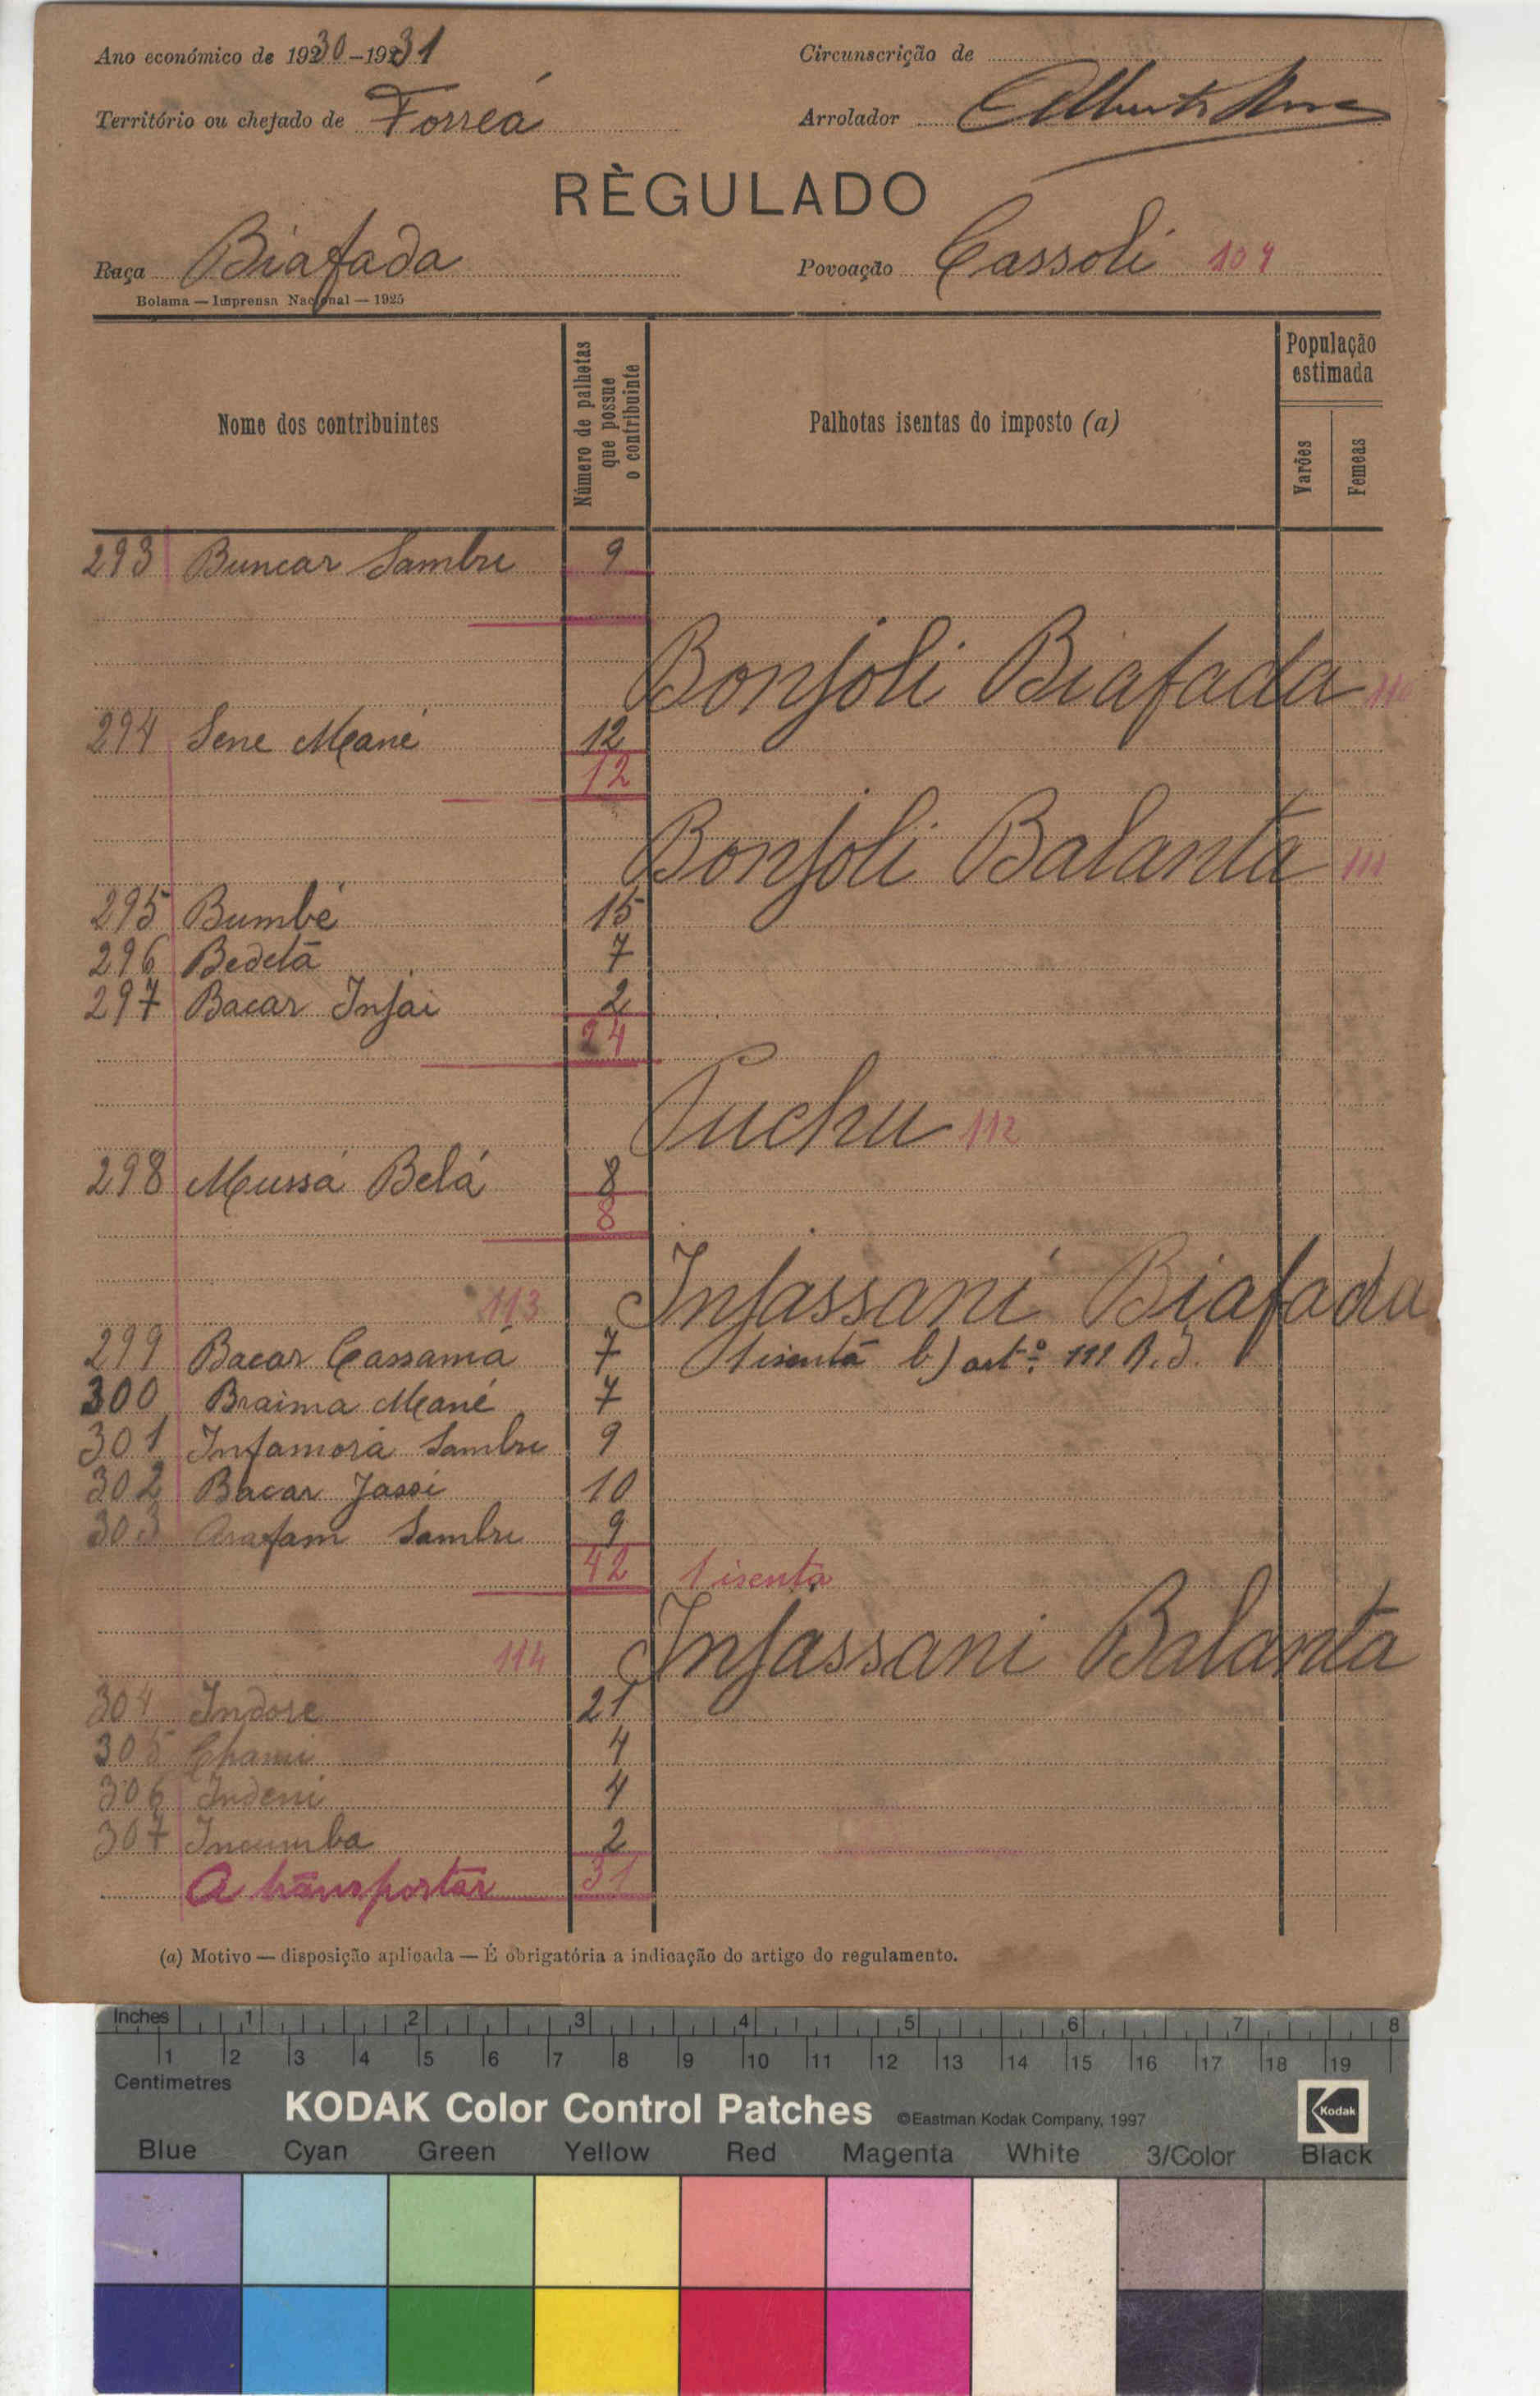 Ano económico de 1930-1931
Circunscrição de
Território ou chefado de Forreá
Arrolador
RÈGULADO
Raça Biafada
Povoação Cassoli 109
Bolama — Imprensa Nacional — 1925
Nome dos contribuintes
Número de palhetas que possue o contribuinte
Palhotas isentas do imposto (a)
População estimada
Varões
Femeas
293 Buncar Sambu 9
Bonjoli Biafada 110
294 Sene Mané 12
12
Bonjoli Balanta 111
295 Bumbé 15
296 Bedetā 7
297 Bacar Injai 2
24
Tuchu 112
298 Mussá Belá 8
8
113 Injassani Biafada
299 Bacar Cassamá 7 1 isenta b) artº 111 R.I.
300 Braima Mané 7
301 Infamorá Sambu 9
302 Bacar Jassi 10
303 Arafam Sambu 9
42 1 isenta
114 Injassani Balanta
304 Indore 21
305 4
306 Indeni 4
307 Incumba 2
A transportar 31
(a) Motivo — disposição aplicada — É obrigatória a indicação do artigo do regulamento.
Inches 1 2 3 4 5 6 7 8
1 2 3 4 5 6 7 8 9 10 11 12 13 14 15 16 17 18 19
Centimetres
KODAK Color Control Patches ©Eastman Kodak Company, 1997 Kodak
Blue Cyan Green Yellow Red Magenta White 3/Color Black